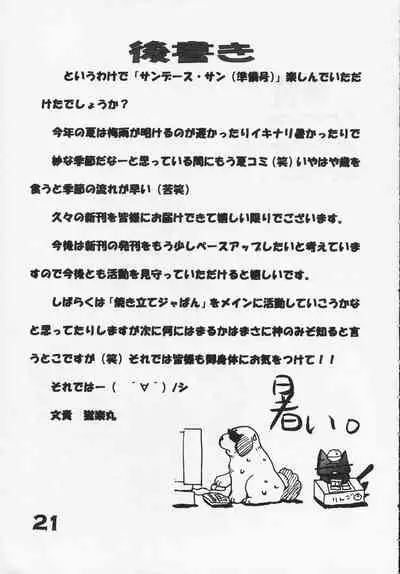 後書き
というわけで「サンデース・サン(準備号)」楽しんでいただ
けたでしょうか?
今年の夏は梅雨が明けるのが遅かったりイキナリ暑かったりで
妙な季節だなーと思っている間にもう夏コミ(笑)いやはや歳を
食うと季節の流れが早い(苦笑)
久々の新刊を皆様にお届けできて嬉しい限りでございます。
今後は新刊の発刊をもう少しペースアップしたいと考えていま
すので今後とも活動を見守っていただけると嬉しいです。
しばらくは「焼き立てジャぱん」をメインに活動していこうかな
と思ってたりしますが次に何にはまるかはまさに神のみぞ知ると言
うとこですが(笑)それでは皆様も御身体にお気をつけて!!
それではー( ´∀`)/シ
文責
暑い。
りんご
21